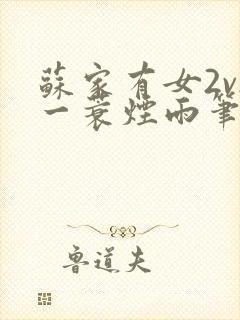 蘇家有女2v
一蓑煙雨筆
魯道夫